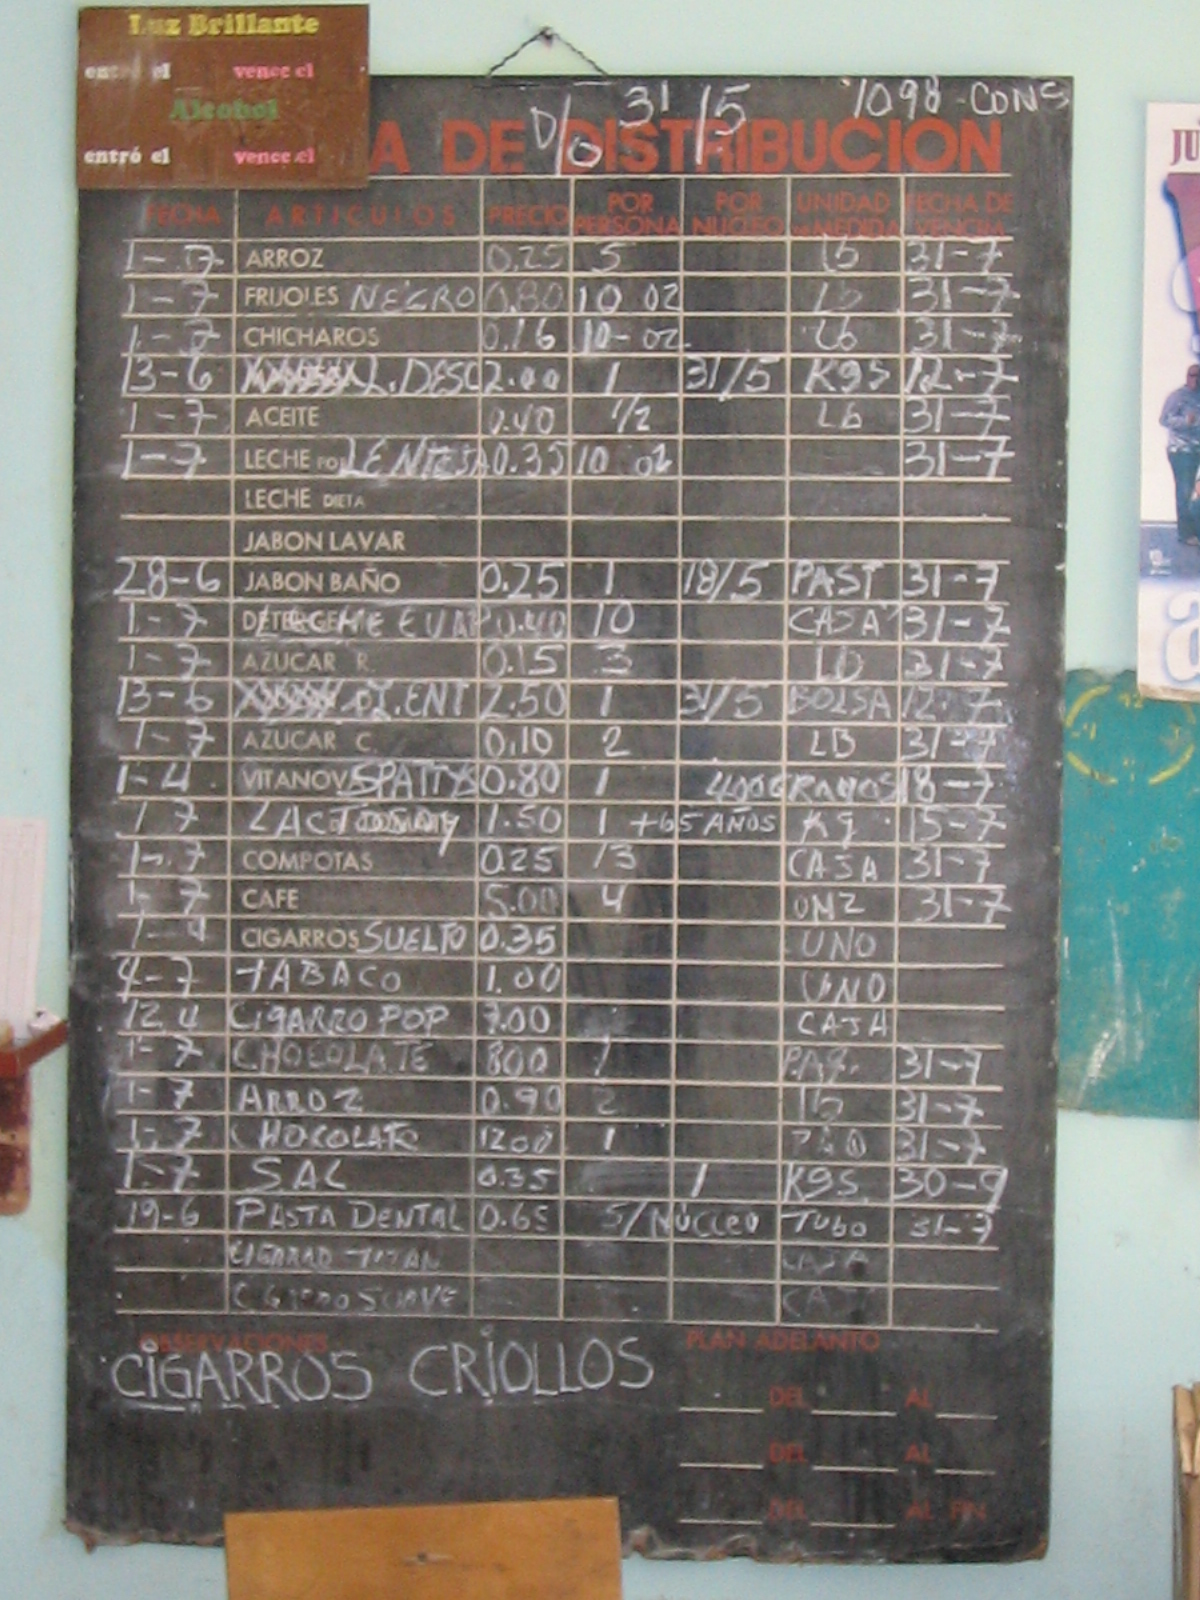 Luz Brillante
entró el vence el
Alcohol
entró el vence el
31/5 1098-CONS
A DE DISTRIBUCION
FECHA ARTICULOS PRECIO POR PERSONA POR NUCLEO UNIDAD DE MEDIDA FECHA DE VENCIM.
1-7 ARROZ 0.25 5 Lb 31-7
1-7 FRIJOLES NEGRO 0.80 10 OZ Lb 31-7
1-7 CHICHAROS 0.16 10-OZ Lb 31-7
13-6 L.DESC 2.00 1 31/5 KgS 12-7
1-7 ACEITE 0.40 1/2 Lb 31-7
1-7 LECHE LENTEJA 0.35 10 OZ 31-7
LECHE DIETA
JABON LAVAR
28-6 JABON BAÑO 0.25 1 18/5 PAST 31-7
1-7 DETERGENTE LECHE EVAP 0.40 10 CAJA 31-7
1-7 AZUCAR R. 0.15 3 LB 31-7
13-6 L.ENT 2.50 1 31/5 BOLSA 12-7
1-7 AZUCAR C. 0.10 2 LB 31-7
1-4 VITANOVA SPATTYS 0.80 1 400GRAMOS 18-7
1 7 LACTOSOY 1.50 1 +65 AÑOS Kg 15-7
1-7 COMPOTAS 0.25 13 CAJA 31-7
1-7 CAFE 5.00 4 ONZ 31-7
1-4 CIGARROS SUELTO 0.35 UNO
4-7 TABACO 1.00 UNO
12 4 CIGARRO POP 7.00 CAJA
1-7 CHOCOLATE 800 1 PAQ. 31-7
1-7 ARROZ 0.90 2 Lb 31-7
1-7 CHOCOLATE 1200 1 31-7
1-7 SAL 0.35 1 KgS. 30-9
19-6 PASTA DENTAL 0.65 5/NUCLEO TUBO 31-7
CIGARRO TITAN CAJA
CIGARRO SUAVE CAJ
OBSERVACIONES PLAN ADELANTO
CIGARROS CRIOLLOS
DEL AL
DEL AL
DEL AL FIN